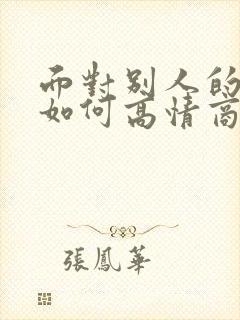 而對別人的
如何高情商
張鳳華